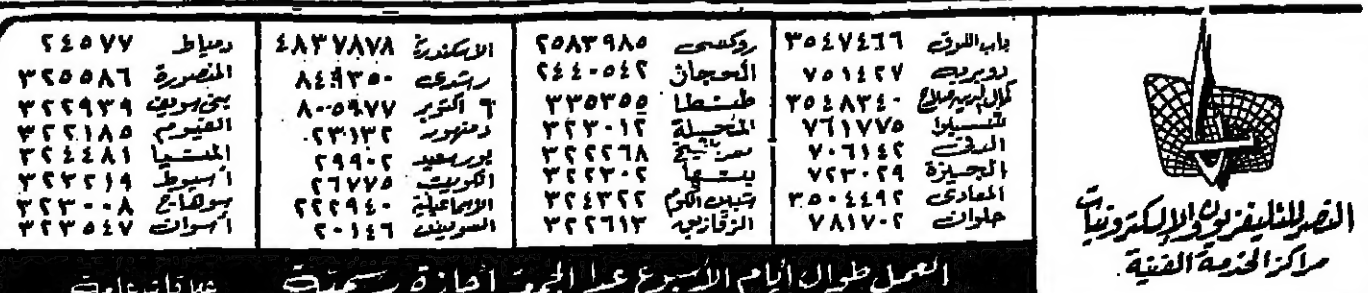 النصر للتليفزيون والإلكترونيات
مراكز الخدمة الفنية.
باب اللوق ٣٥٤٧٤٦٦
دوبريه ٧٥١٤٢٧
كمال الدين صلاح ٣٥٤٨٣٤٠
٧٦١٧٧٥
الدقى ٧٠٦١٤٢
الجيزة ٧٢٣٠٢٩
المعادى ٣٥٠٤٤٩٢
حلوان ٧٨١٧٠٢
روكسى ٢٥٨٣٩٨٥
الحجاز ٢٤٤٠٥٤٢
طنطا ٣٣٥٣٥٥
المحلة ٣٢٣٠١٢
٣٢٢٢٦٨
بنها ٣٢٢٣٠٢
شبين الكوم ٣٢٤٣٢٢
الزقازيق ٣٢٢٦١٣
الاسكندرية ٤٨٣٧٨٧٨
رشدى ٨٤٩٣٥٠
٦ أكتوبر ٨٠٠٥٩٧٧
دمنهور ٢٣١٣٢
بورسعيد ٢٩٩٠٢
الكويت ٢٦٧٧٥
الاسماعيلية ٢٢٢٩٤٠
السويس ٢٠١٤٦
دمياط ٢٤٥٧٧
المنصورة ٣٢٥٥٨٦
بنى سويف ٣٢٢٩٣٩
الفيوم ٣٢٢١٨٥
المنيا ٣٢٤٤٨١
أسيوط ٣٢٣٢١٩
سوهاج ٣٢٣٠٠٨
أسوان ٣٢٣٥٤٧
العمل طوال أيام الأسبوع عدا الجمعة أجازة رسمية
علاقات عامة